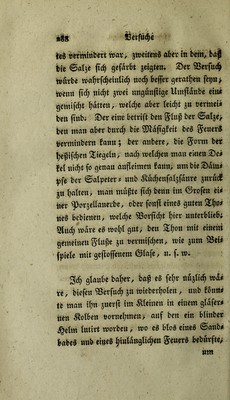 288 Versuche
tes vermindert war, zweitens aber in dem, daß
die Salze sich gefärbt zeigten. Der Versuch
würde wahrscheinlich noch besser gerathen seyn,
wenn sich nicht zwei ungünstige Umstände ein-
gemischt hätten, welche aber leicht zu vermeis
den sind. Der eine betrift den Fluß der Salze,
den man aber durch die Mäßigkeit des Feuers
vermindern kann; der andere, die Form der
heßischen Tiegeln, nach welchen man einen De-
kel nicht so genau aufkeimen kann, um die Däm-
pfe der Salpeter- und Küchensalzsäure zurück
zu halten, man müßte sich denn im Grosen ei-
ner Porzellanerde, oder sonst eines guten Tho-
nes bedienen, welche Vorsicht hier unterblieb.
Auch wäre es wohl gut, den Thon mit einem
gemeinen Fluße zu vermischen, wie zum Bei-
spiele mit gestossenem Glase, u. s. w.
Ich glaube daher, daß es sehr nüzlich wä-
re, diesen Versuch zu wiederholen, und könn-
te man ihn zuerst im Kleinen in einem gläser-
nen Kolben vornehmen, auf den ein blinder
Helm lutirt worden, wo es blos eines Sand-
bades und eines hinlänglichen Feuers bedürfte,
um